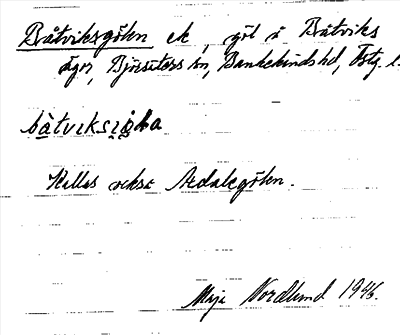 Båtviksgölen ek, göl å Båtviks
ägor, Björsäters sn, Bankekinds hd, Östg. l.
båtviksjöla
Kallas också Ardalsgölen.
Maja Nordlund 1946.